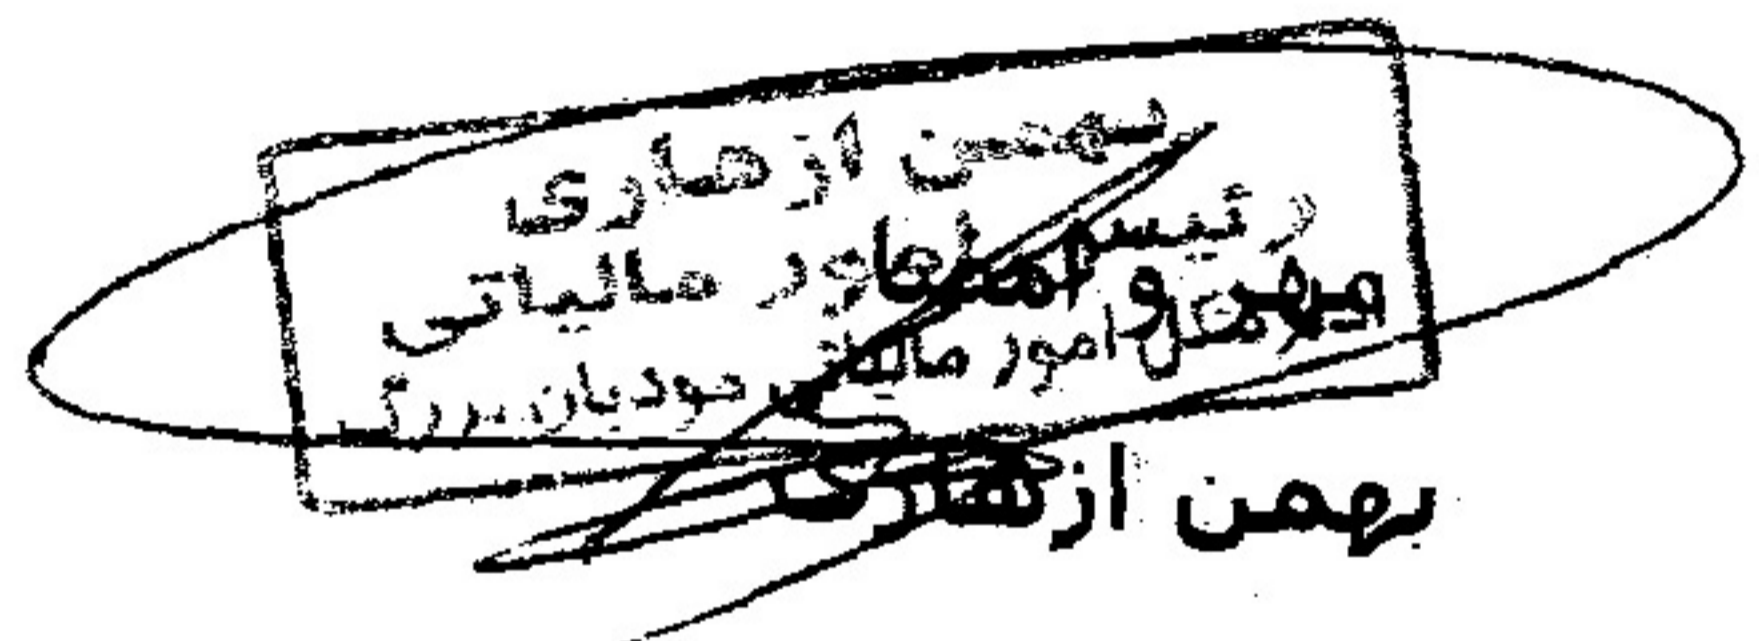 بهمن ازهاری
رئیس امور مالیاتی
مهر و امضا
امور مالیاتی مودیان بزرگ
بهمن ازهاری